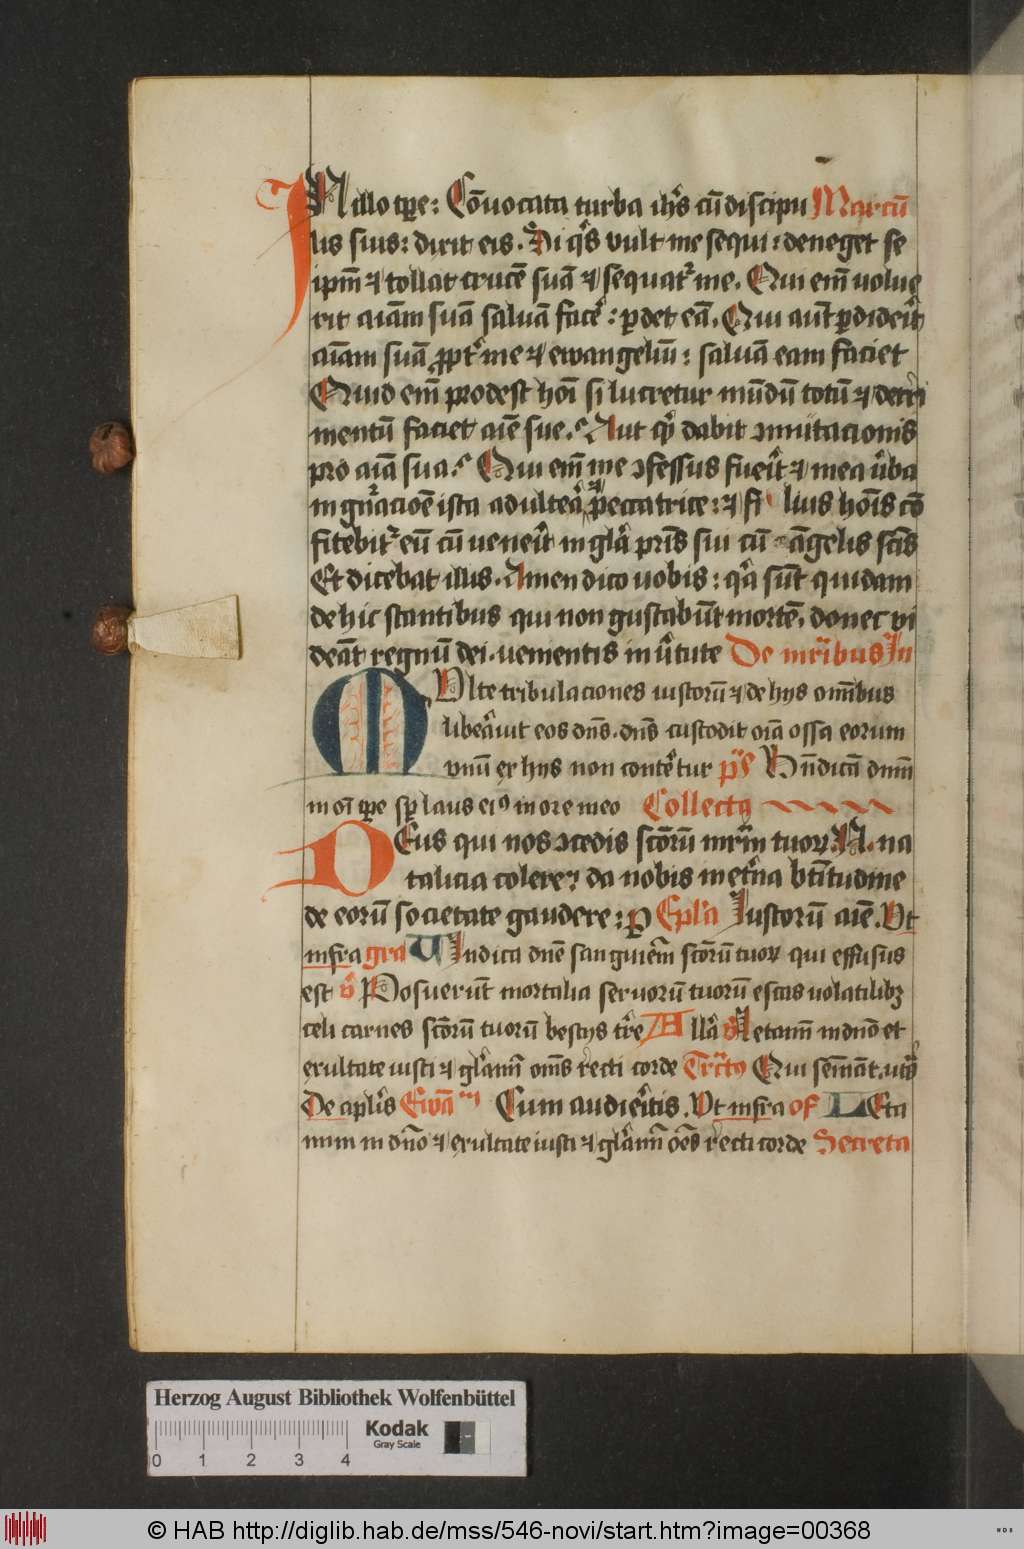 IN illo tp̄e: Cōuocata turba ih̄s cū discipu Marcū
lis suis: dixit eis. Si q̄s vult me sequi: deneget se
ipm̄ ⁊ tollat crucē suā ⁊ sequat᷑ me. Qui em̄ volue
rit aīam suā saluā facē: ꝑdet eā. Qui aūt ꝑdideīt
aīam suā ꝓpt᷑ me ⁊ ewangeliū: saluā eam faciet
Quid em̄ prodest hoī si lucretur mūdū totū ⁊ detri
mentū faciet aīe sue. Aut qͥd dabit ꝯmutacionis
pro aīa sua. Qui em̄ me ꝯfessus fueīt ⁊ mea v̄ba
in gn̄acioē ista adultēa ⁊ peccatrice: ⁊ fi lius hoīs cō
fitebit᷑ eū cū veneīt in glā pr̄is sui cū āgelis sc̄is
Et dicebat illis. Amen dico vobis: qͣ sūt quidam
de hic stantibus qui non gustabūt mortē. donec vi
deāt regnū dei. venientis in v̄tute De mr̄ibus In
MVlte tribulaciones iustorū ⁊ de hys om̄ibus
libeāuit eos dn̄s. dn̄s custodit oīa ossa eorum
vnū ex hys non contētur p̄s Bn̄dicā dnm̄
in oī tp̄e sp̄ laus eiꝰ in ore meo Collecta
DEus qui nos ꝯcedis sc̄orū mr̄m̄ tuoꝝ. N. na
talicia colere? da nobis in et̄na bt̄itudine
de eorū societate gaudere: ꝑ Epl̄a Iustorū aīe. Vt
infra gra VIndica dn̄e sanguiēm sc̄orū tuoꝝ qui effusus
est v̄ Posuerūt mortalia seruorū tuorū escas volatilibꝫ
celi carnes sc̄orū tuorū bestys tr̄e Allā v̄ Letamī in dn̄o et
exultate iusti ⁊ glāmī om̄s recti corde Tr̄cty Qui sem̄āt. vt ꝰ
De apl̄is Ewāᵐ Cum audiēitis. Vt infra of LEta
mini in dn̄o ⁊ exultate iusti ⁊ glāmī oēs recti corde Secreta
Herzog August Bibliothek Wolfenbüttel
Kodak
Gray Scale
0 1 2 3 4
© HAB http://diglib.hab.de/mss/546-novi/start.htm?image=00368